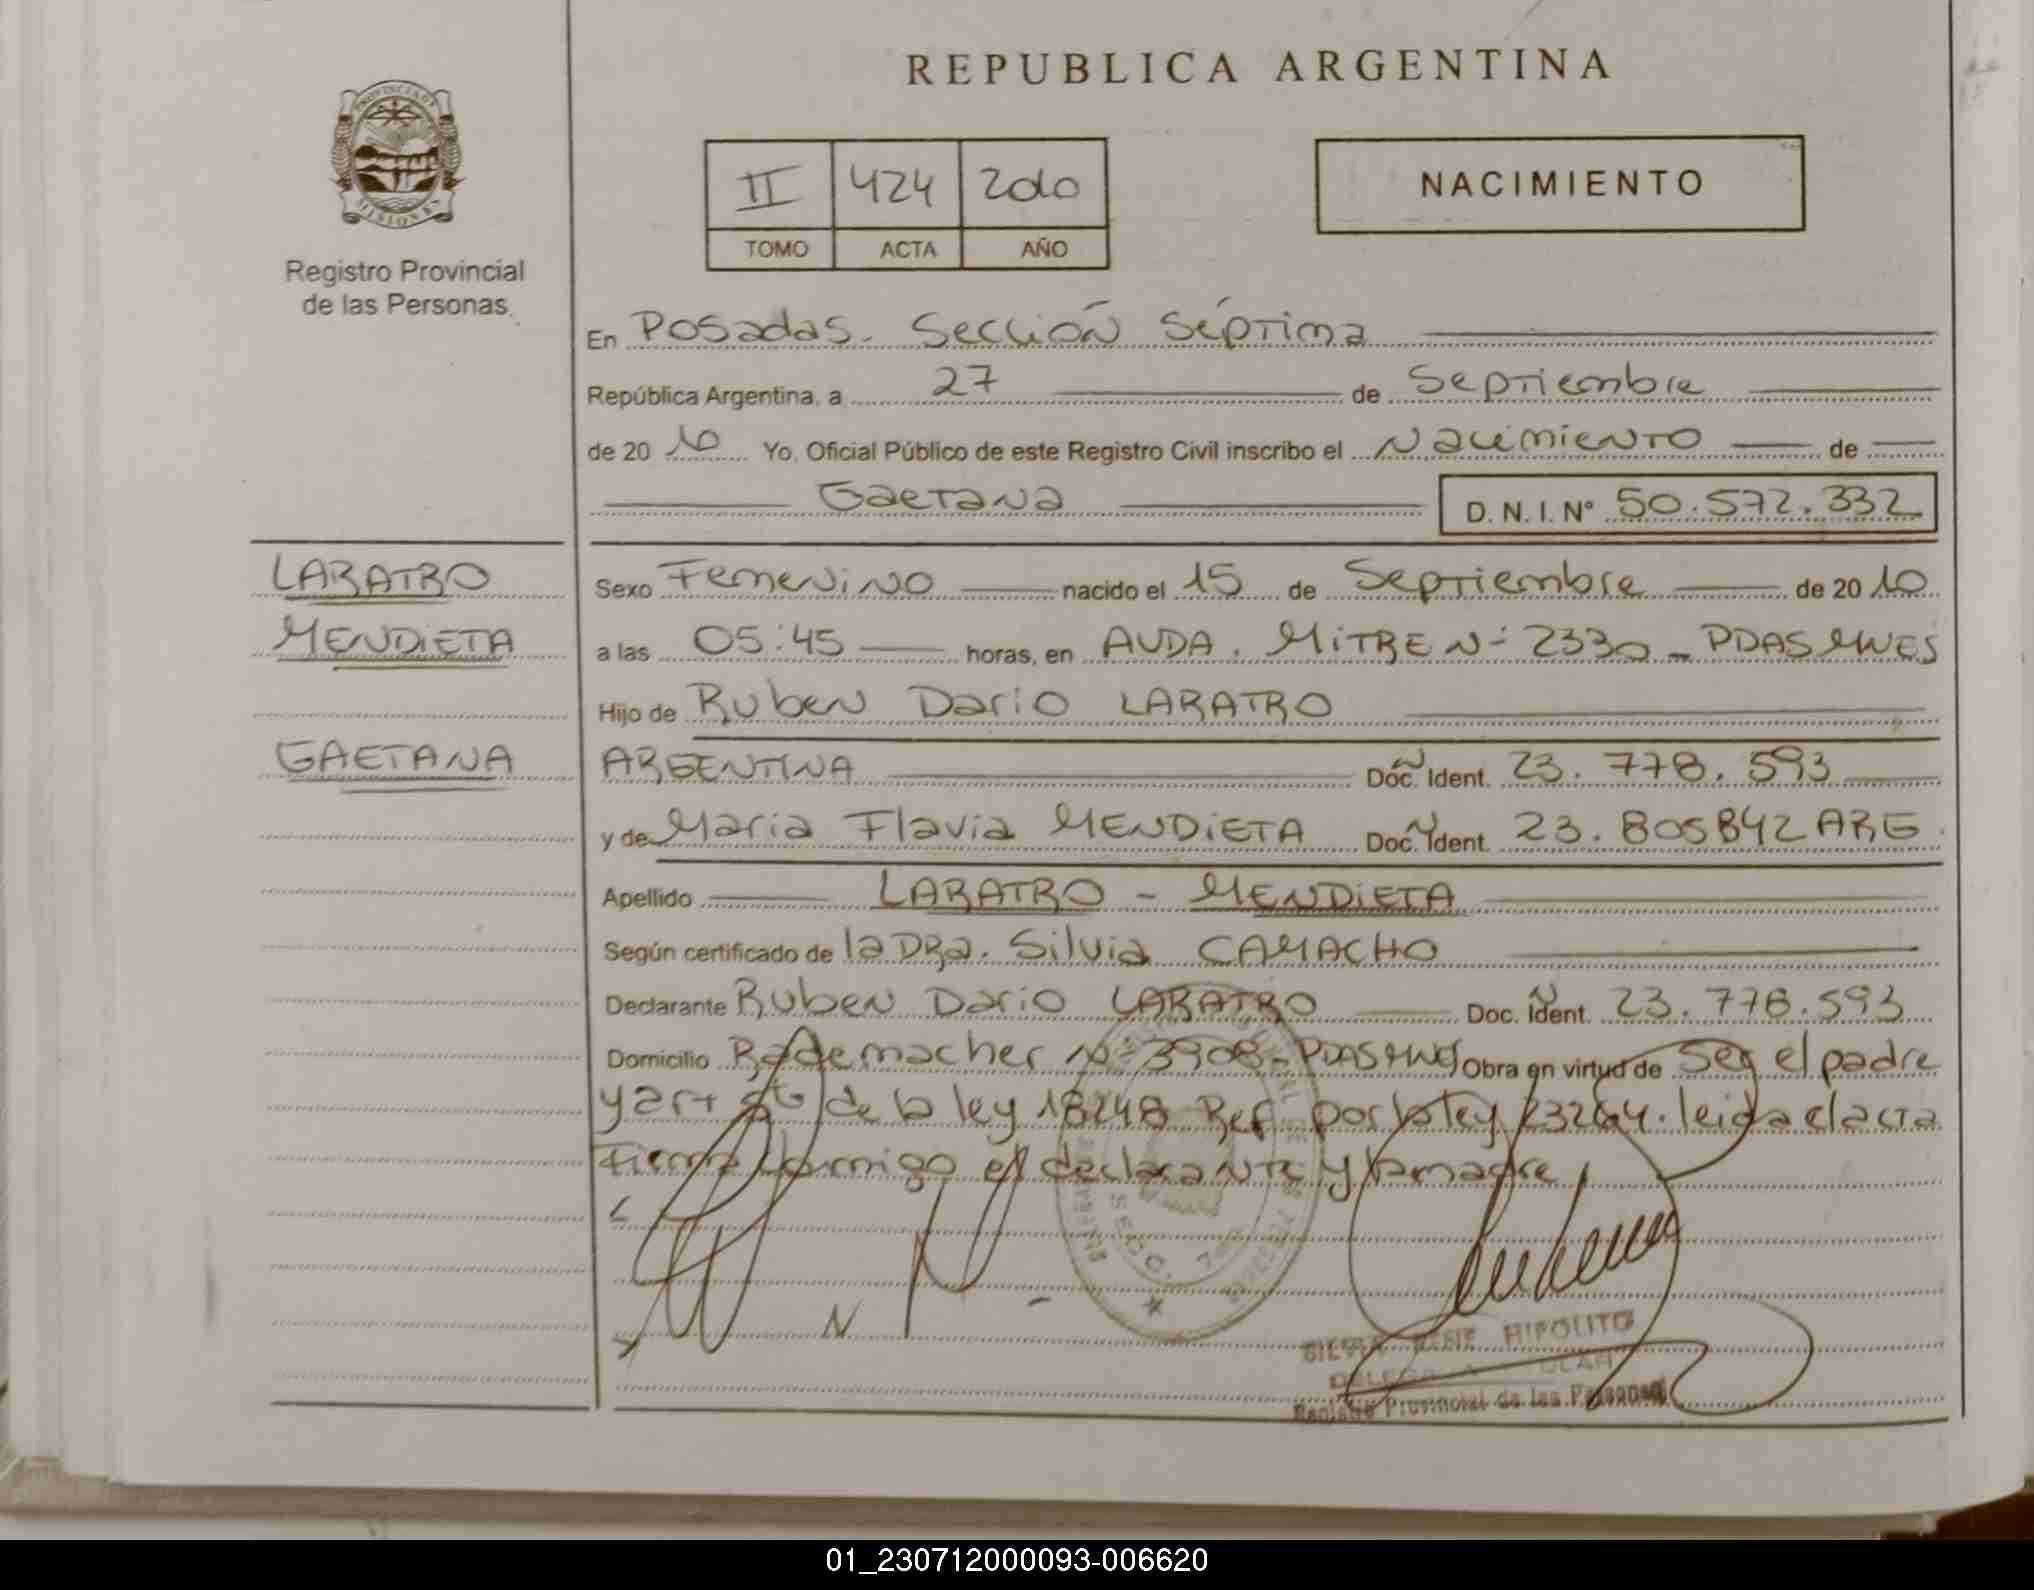 REPUBLICA ARGENTINA
PROVINCIA DE MISIONES
Registro Provincial
de las Personas
II 424 2010
TOMO ACTA AÑO
NACIMIENTO
En Posadas. Sección Séptima
República Argentina, a 27 de Septiembre
de 2010 Yo, Oficial Público de este Registro Civil inscribo el Nacimiento de
Gaetana D.N.I. Nº 50.572.332
LARATRO
MENDIETA
GAETANA
Sexo Femenino nacido el 15 de Septiembre de 2010
a las 05:45 horas, en AVDA. MITRE Nº 2330 - PDAS MNES
Hijo de Ruben Dario LARATRO
ARGENTINA Doc. Ident. 23.778.593
y de Maria Flavia MENDIETA Doc. Ident. 23.805842 ARG.
Apellido LARATRO - MENDIETA
Según certificado de la DRa. Silvia CAMACHO
Declarante Ruben Dario LARATRO Doc. Ident. 23.778.593
Domicilio Rademacher Nº 3908 - PDAS MNES Obra en virtud de Ser el padre
y art de la ley 18248 Ref. por la ley 23264. leida el acta
Firma conmigo el declarante y la madre
SECC. 7
HIPOLITO
Registro Provincial de las Personas
01_230712000093-006620